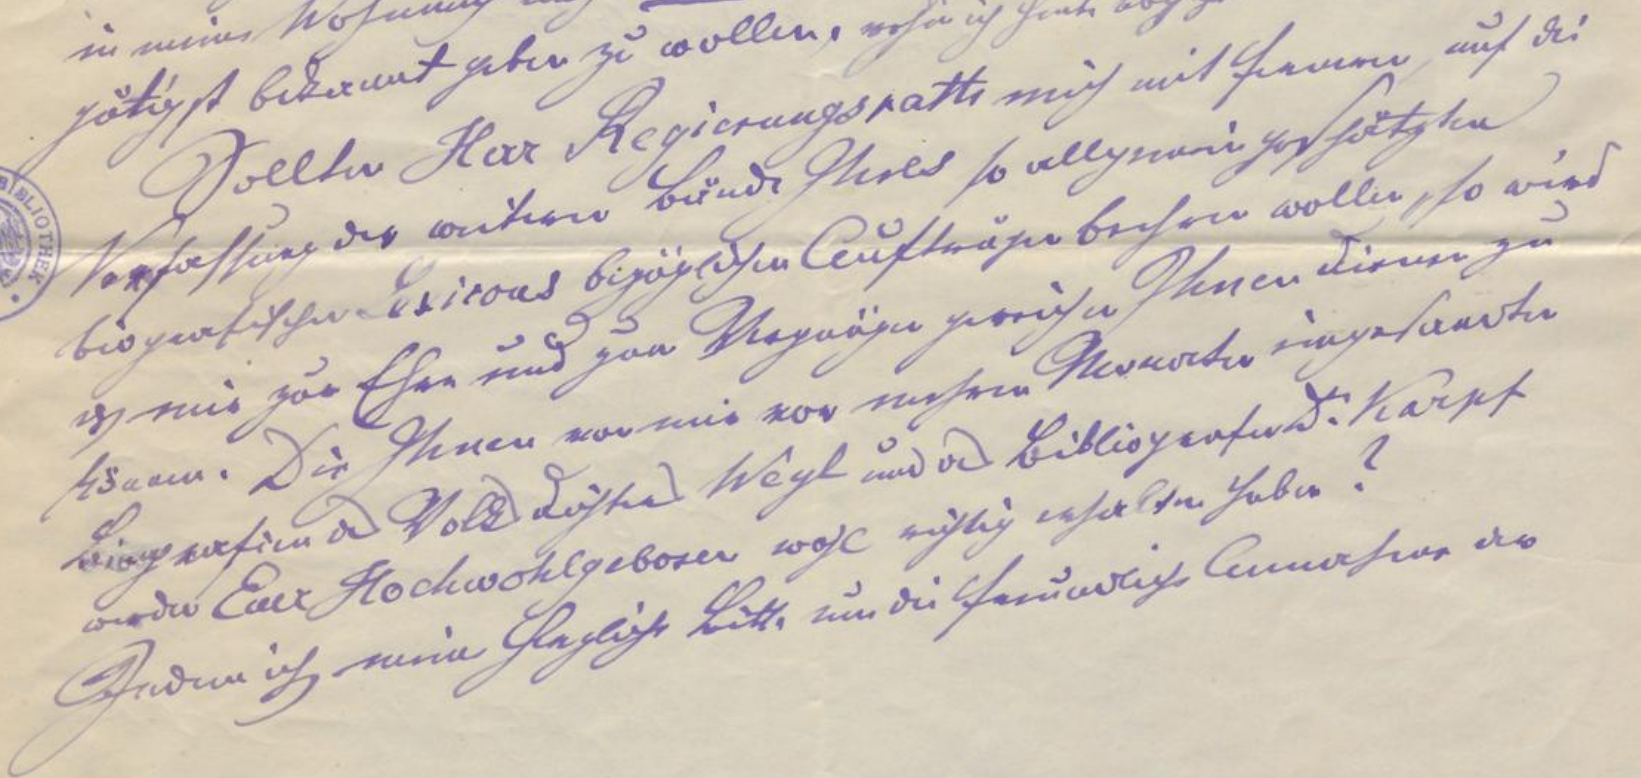 in meine Wohnung
gütigst bekannt geben zu wollen, ich heute
Sollten Herr Regierungsrath mich mit ferneren, auf die
Verfassung der weiteren Bände Ihres so allgemein geschätzten
biografischen Lexicons bezüglichen Aufträgen beehren wollen, so wird
es mir zur Ehre und zum Vergnügen gereichen Ihnen dienen zu
können. Die Ihnen von mir vor mehren Monaten eingesandten
Biografien d Volksdichters Weyl und d Bibliografen Dr. Karpf
werden Euer Hochwohlgeboren wohl richtig erhalten haben?
Indem ich meine herzliche Bitte um die freundliche Annahme der
BIBLIOTHEK